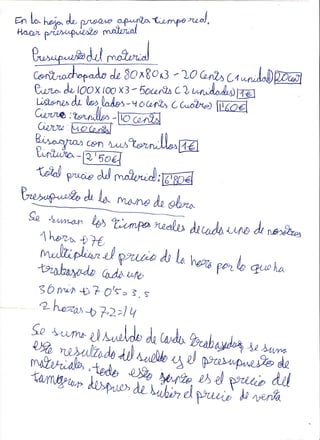 En la hoja de proceso apunta tiempo real.
Hacer presupuesto material
Presupuesto del material
Contrachapado de 80x80x3 - 20 cents (1 unidad) 20cent
de 100x100x3 - 50cents (2 unidades) 1€
Listones de los lados - 40cents (cuatro) 1'60€
Cierre: tornillos - 10 cents
Cierre 40cents
Bisagras con sus tornillos 1€
Pintura - 2'50€
Total precio del material: 6'80€
Presupuesto de la mano de obra
Se suman los tiempos reales de cada uno de nosotros
1 hora → 7€
Multiplicar el precio de la hora por lo que ha
trabajado cada uno
30 min → 7 0'5 = 3,5
2 horas → 7·2 = 14
Se suma el sueldo de cada trabajador, se suma
este resultado del sueldo y el presupuesto de
materiales. todo esto junto es el precio del
despues de subir el precio de venta